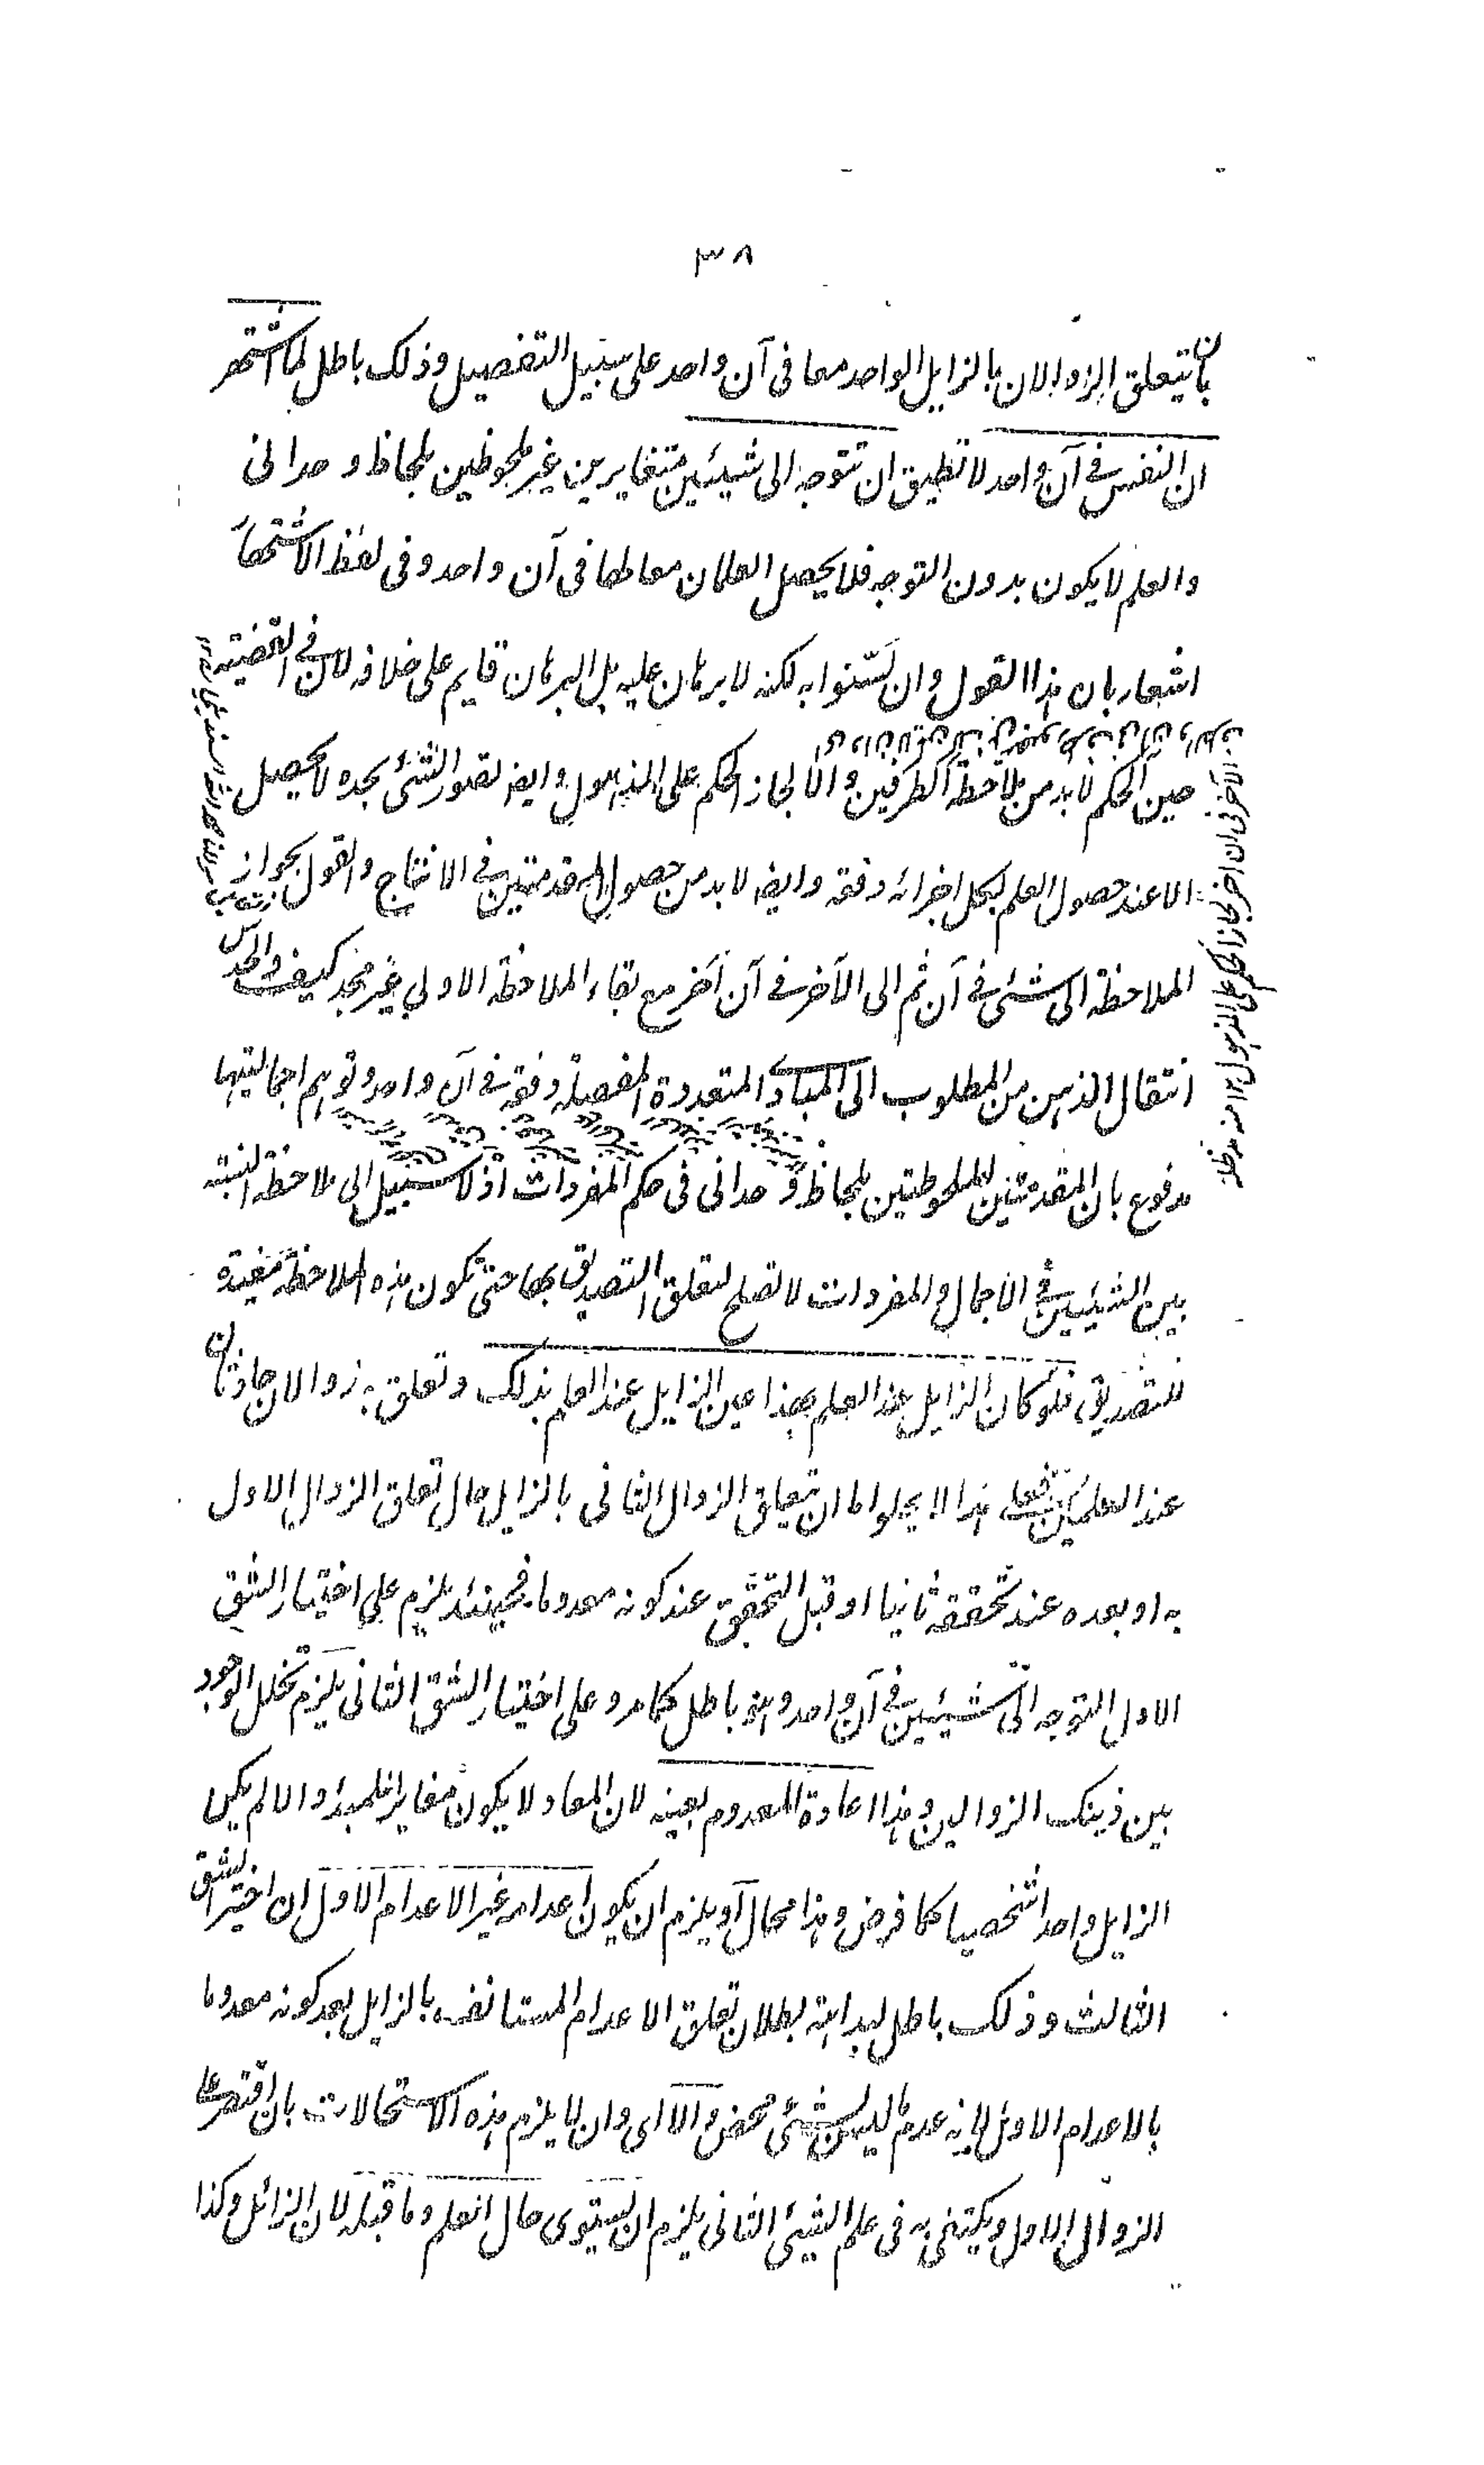 ٣٨
بان يتعلق الزوالان بالزايل الواحد معا في آن واحد على سبيل التفصيل وذلك باطل لما اشتهر
ان النفس في آن واحد لا تطيق ان تتوجه الى شيئين متغايرين غير ملحوظين بلحاظ وحداني
والعلم لا يكون بدون التوجه فلا يحصل العلمان معا لها في آن واحد وفي لفظ الاشتهار
اشعار بان هذا القول وان تسننوا به لكنه لا برهان عليه بل البرهان قايم على خلافه لان في القضية
حين الحكم لا بد من ملاحظة الطرفين والا لجاز الحكم على المذهول وايضا تصور الشئ بحده لا يحصل
الا عند حصول العلم بكل اجزائه دفعة وايضا لا بد من حصول المقدمتين في الانتاج والقول بجواز
الملاحظة الى شئ في آن ثم الى الآخر في آن آخر مع بقاء الملاحظة الاولى غير مجد كيف والحدس
انتقال الذهن من المطلوب الى المبادي المتعددة المفصلة دفعة في آن واحد وتوهم اجماليتها
مدفوع بان المقدمتين الملحوظتين بلحاظ وحداني في حكم المفردات اذ لا سبيل الى ملاحظة النسبة
بين الشيئين في الاجمال والمفردات لا تصلح لتعلق التصديق بها حتى تكون هذه الملاحظة مفيدة
للتصديق فلو كان الزايل عند العلم بهذا عين الزايل عند العلم بذلك وتعلق به زوالان حادثان
عند العلمين فعلى هذا لا يخلو اما ان يتعلق الزوال الثاني بالزايل حال تعلق الزوال الاول
به او بعده عند تحققه ثانيا او قبل التحقق عند كونه معدوما فحينئذ يلزم على اختيار الشق
الاول التوجه الى شيئين في آن واحد وهو باطل كما مر وعلى اختيار الشق الثاني يلزم تخلل الوجود
بين ذينك الزوالين وهذا اعادة المعدوم بعينه لان المعاد لا يكون مغايرا للمبدء والا لم يكن
الزايل واحدا شخصيا كما فرض وهذا محال او يلزم ان يكون اعدامه غير الاعدام الاول ان اختير الشق
الثالث وذلك باطل لبداهة بطلان تعلق الاعدام المستانف بالزايل بعد كونه معدوما
بالاعدام الاول لانه عدم ليس بشئ محض والا اى وان لا يلزم هذه الاستحالات بان اقتصر على
الزوال الاول ويكتفى به في علم الشيئ الثاني يلزم ان يستوى حال العلم وما قبله لان الزائل وكذا